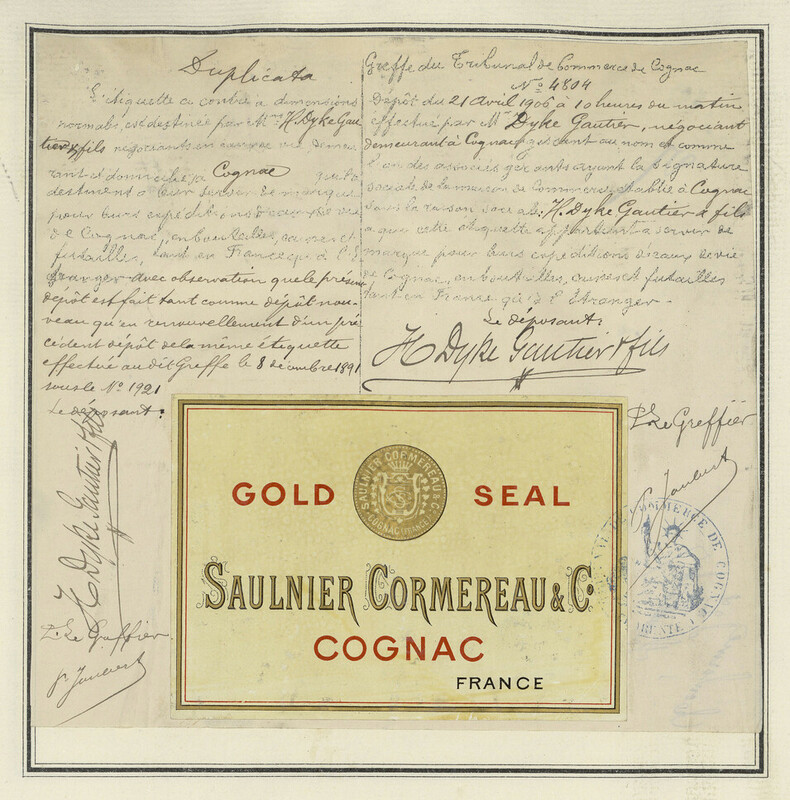 Duplicata
L'étiquette ci contre à dimensions
normales, est destinée par Mrs H. Dyke Gau-
tier & fils négociants en eaux de vie demeu-
rant et domiciliés à Cognac
destinent à leur servir de marque
pour leurs expéditions d'eaux de vie
de Cognac, en bouteilles, caisses et
futailles, tant en France qu'à l'E-
tranger avec observation que le présent
dépôt est fait tant comme dépôt nou-
veau qu'en renouvellement d'un pré-
cédent dépôt de la même étiquette
effectué au dit Greffe le 8 décembre 1891
sous le No 1921
Le déposant:
H Dyke Gautier & fils
Le Greffier
Joubert
Greffe du Tribunal de Commerce de Cognac
No 4804
Dépôt du 21 Avril 1906 à 10 heures du matin
effectué par Mr Dyke Gautier, négociant
demeurant à Cognac agissant au nom et comme
l'un des associés gérants ayant la signature
sociale de la maison de Commerce établie à Cognac
sous la raison sociale: H. Dyke Gautier & fils
a que cette étiquette appartient à servir de
marque pour leurs expéditions d'eaux de vie
de Cognac, en bouteilles, caisses et futailles
tant en France qu'à l'Etranger.
Le déposant:
H Dyke Gautier & fils
Le Greffier
Joubert
SAULNIER CORMEREAU & Co
COGNAC (FRANCE)
GOLD SEAL
SAULNIER CORMEREAU & Co
COGNAC
FRANCE
TRIBUNAL DE COMMERCE DE COGNAC
CHARENTE